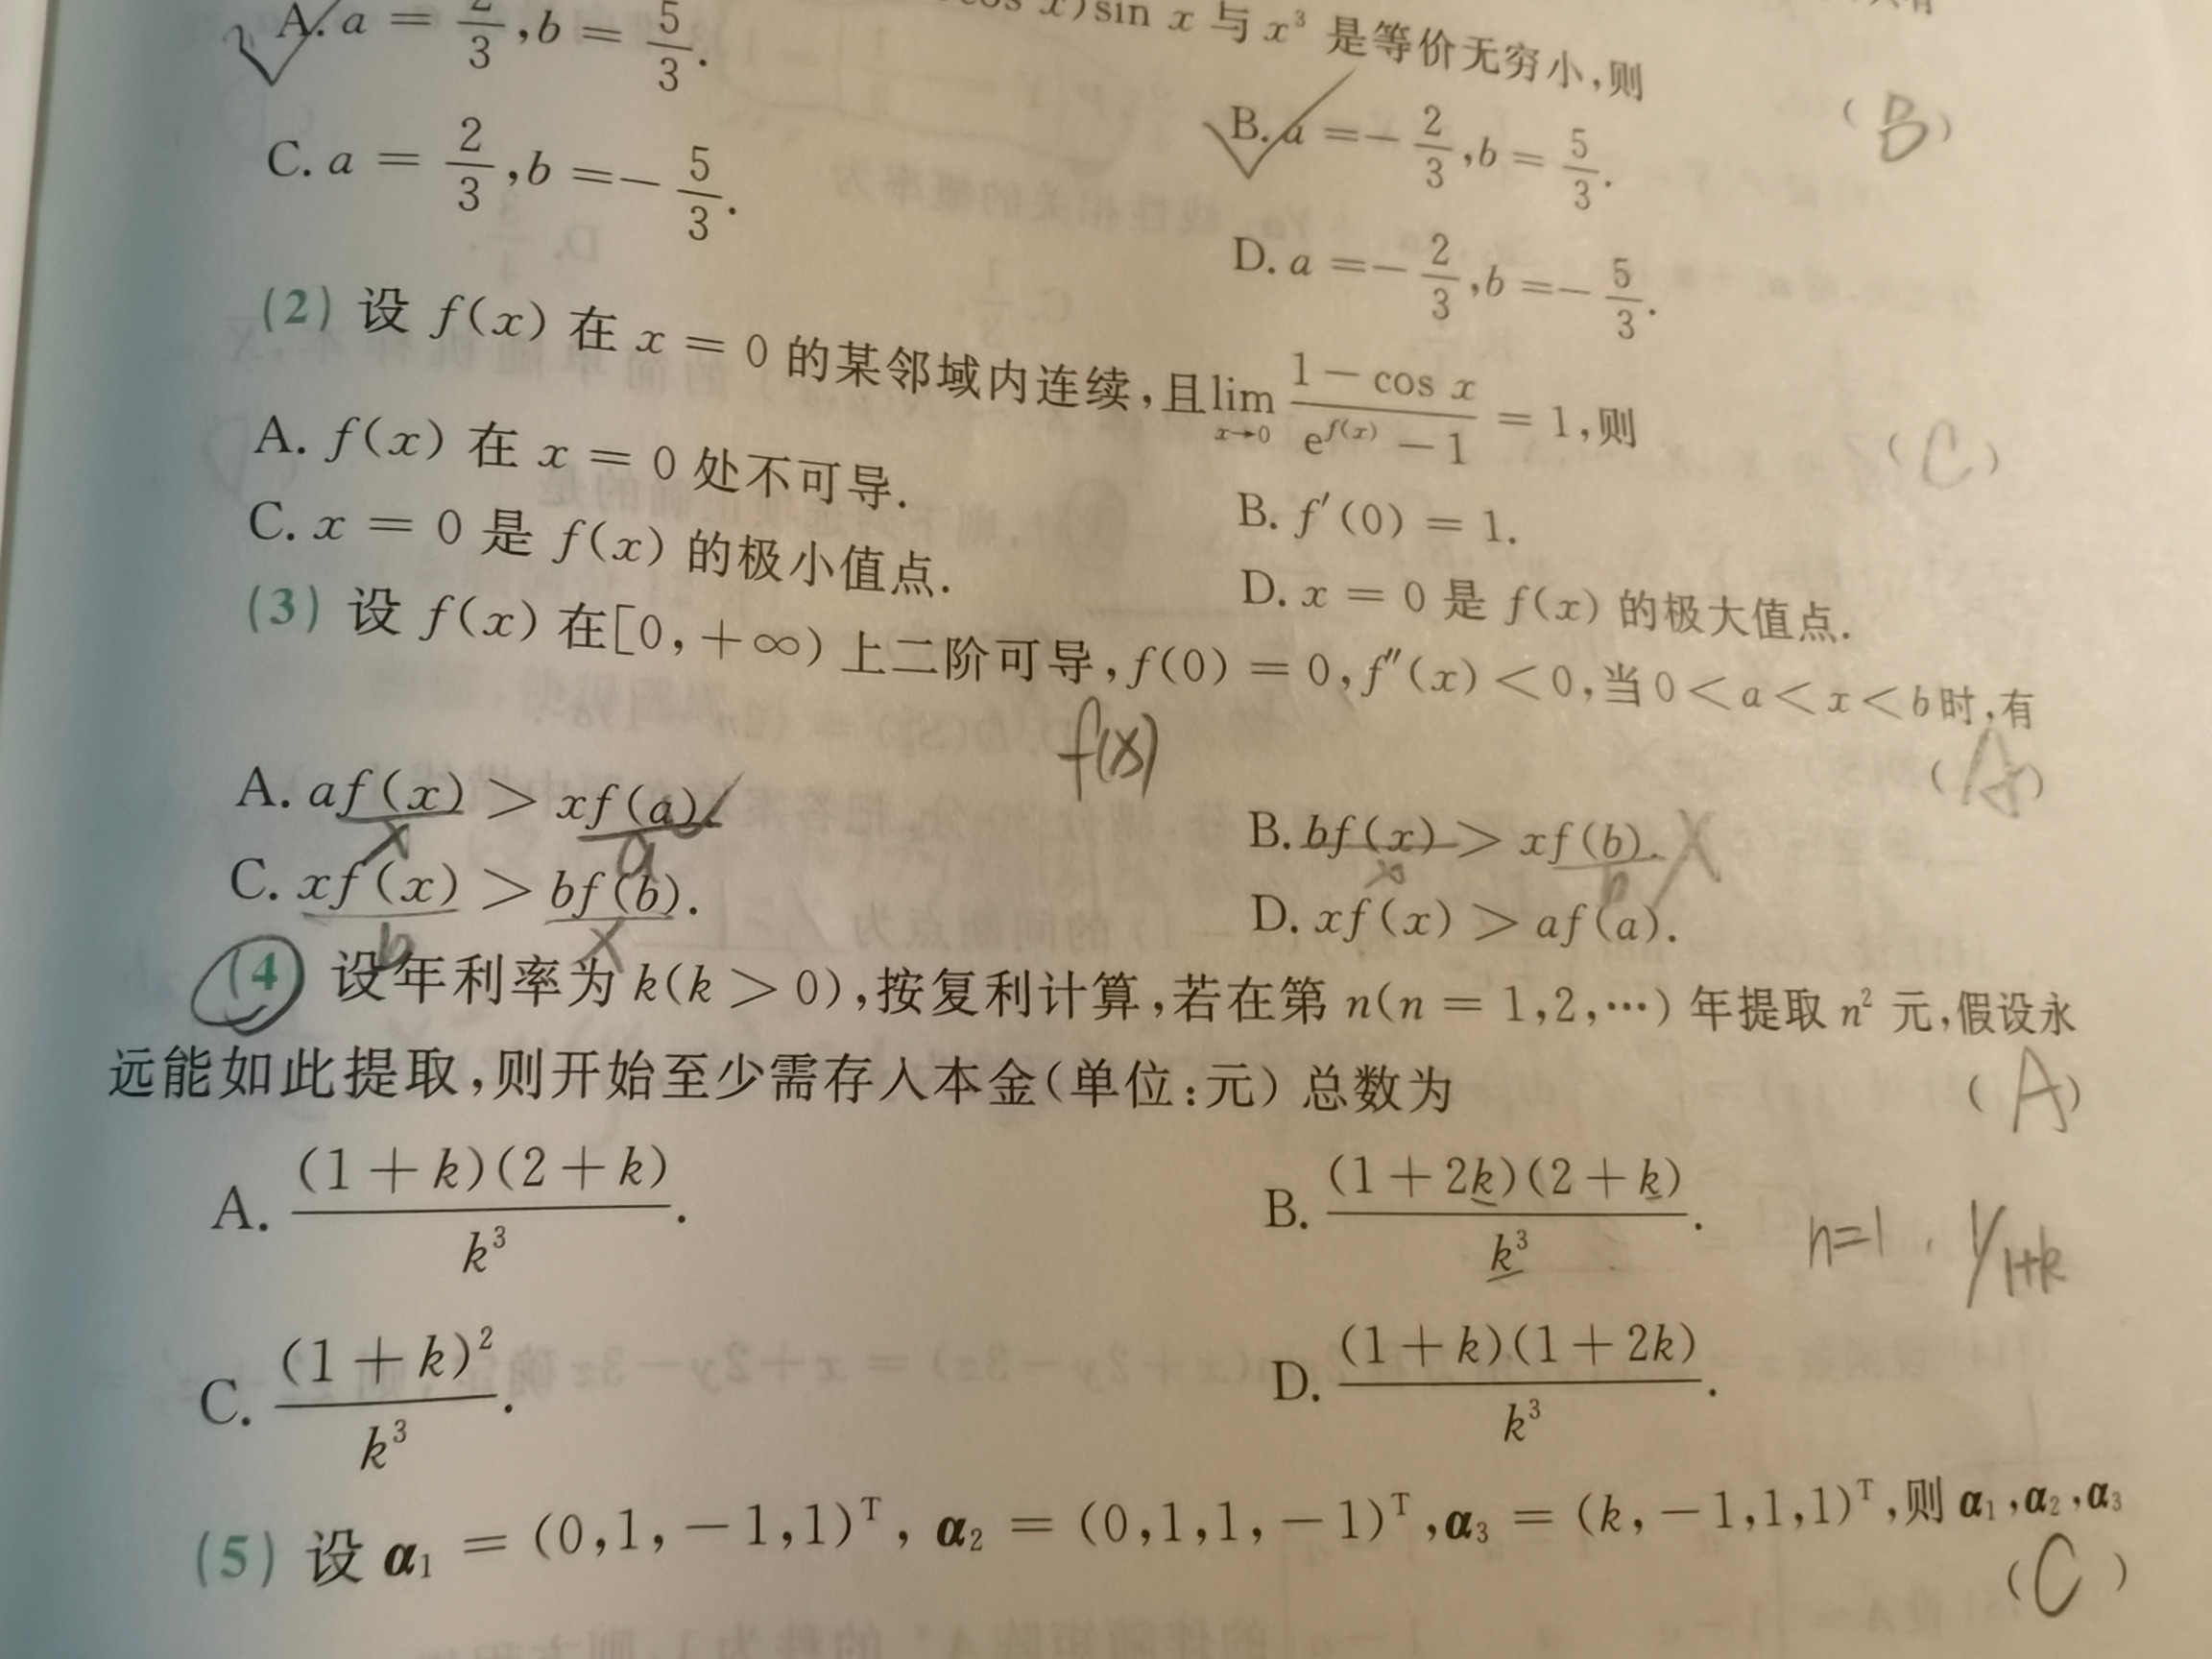 cos x)sin x 与 x³ 是等价无穷小,则
(B)
A. a = 2/3, b = 5/3.
B. a = -2/3, b = 5/3.
C. a = 2/3, b = -5/3.
D. a = -2/3, b = -5/3.
(2) 设 f(x) 在 x = 0 的某邻域内连续,且 lim x→0 (1 - cos x)/(e^f(x) - 1) = 1,则
(C)
A. f(x) 在 x = 0 处不可导.
B. f′(0) = 1.
C. x = 0 是 f(x) 的极小值点.
D. x = 0 是 f(x) 的极大值点.
(3) 设 f(x) 在[0, +∞) 上二阶可导, f(0) = 0, f″(x) < 0,当 0 < a < x < b 时,有
f(x)
(A)
A. af(x) > xf(a).
x a
B. bf(x) > xf(b).
x b
C. xf(x) > bf(b).
b x
D. xf(x) > af(a).
(4) 设年利率为 k(k > 0),按复利计算,若在第 n(n = 1,2,…) 年提取 n² 元,假设永
远能如此提取,则开始至少需存入本金(单位:元) 总数为
(A)
A. (1 + k)(2 + k)/k³.
B. (1 + 2k)(2 + k)/k³.
n=1, 1/1+k
C. (1 + k)²/k³.
D. (1 + k)(1 + 2k)/k³.
(5) 设 α₁ = (0,1,-1,1)ᵀ, α₂ = (0,1,1,-1)ᵀ, α₃ = (k,-1,1,1)ᵀ,则 α₁,α₂,α₃
(C)